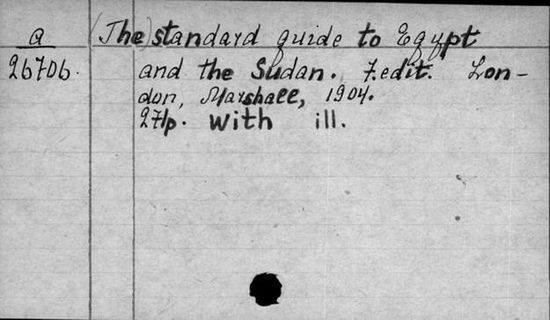 a (The) standard guide to Egypt
26706. and the Sudan. 7.edit. Lon-
don, Marshall, 1904.
271p. with ill.